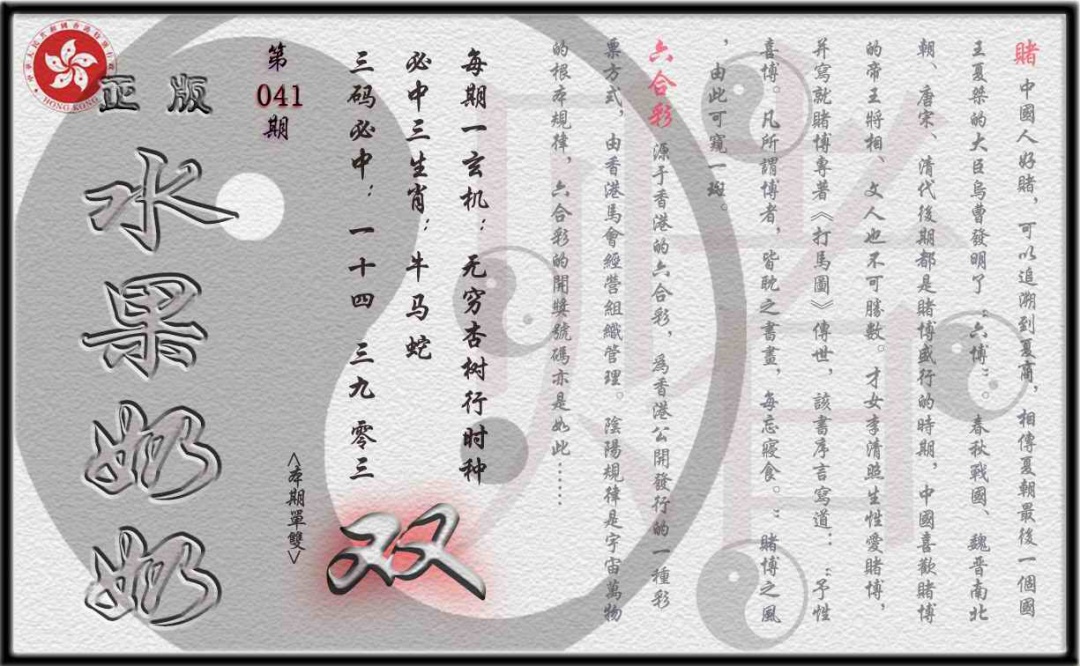 賭 中國人好賭，可以追溯到夏商，相傳夏朝最後一個國
王夏桀的大臣烏曹發明了“六博”。春秋戰國、魏晋南北
朝、唐宋、清代後期都是賭博盛行的時期，中國喜歡賭博
的帝王將相、文人也不可勝數。才女李清照生性愛賭博，
并寫就賭博專著《打馬圖》傳世，該書序言寫道：“予性
喜博。凡所謂博者，皆耽之書畫，每忘寢食。”賭博之風
，由此可窺一斑。
六合彩 源于香港的六合彩，爲香港公開發行的一種彩
票方式，由香港馬會經營組織管理。陰陽規律是宇宙萬物
的根本規律，六合彩的開獎號碼亦是如此……
每期一玄机：无穷杏树行时种
必中三生肖：牛马蛇
三码必中：一十四 三九 零三
双
<本期單雙>
第
041
期
正版
水果奶奶
HONG KONG